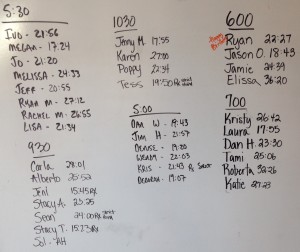 5:30
Ivo - 21:56
Megan - 17:24
Jo - 21:20
Melissa - 24:33
Jeff - 20:55
Ryan M - 27:12
Rachel M - 26:55
Lisa - 21:34
930
Carla 28:01
Alberto 25:52
Jeni 15:45 Rx
Stacy A. 23:25
Sean 24:00 Rx
Stacy T. 15:23 Rx
Sol - AH
1030
Jenny M. 17:55
Karen 27:00
Poppy 22:34
Tess 19:50 Rx
5:00
Dan W - 19:43
Jim H - 21:57
Denise - 19:20
Wendy - 22:03
Kris - 21:43 Rx
Deborah - 19:07
600
Ryan 22:27
Jason O. 18:43
Jamie 24:39
Elissa 36:20
700
Kristy 26:42
Laura 17:55
Dan H. 23:30
Tami 25:06
Roberta 32:26
Katie 27:23